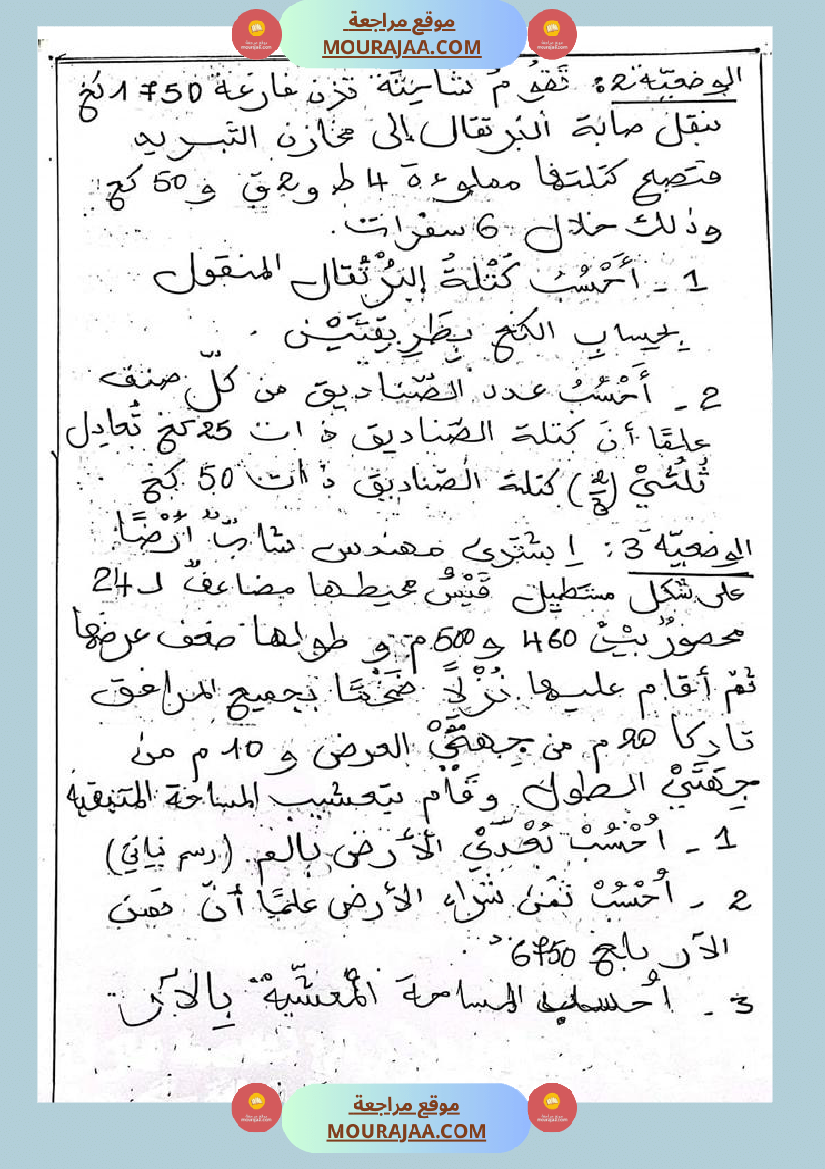 موقع مراجعة
MOURAJAA.COM
الوضعيّة 2: تَقُومُ شاحنة تزن فارغة 1750 كغ
بنقل صابة البرتقال إلى مخازن التّبريد
فتصبح كتلتها مملوءة 4ط و 2ق و 50 كغ
وذلك خلال 6 سفرات.
1 - أَحْسُبُ كُتْلَةُ البُرْتُقال المنقول
بِحِسابِ الكغ بِطَرِيقَتَيْن .
2 - أَحْسُبُ عدد الصّناديق من كلّ صنف
علمًا أنّ كتلة الصّناديق ذات 25 كغ تُعادِل
ثُلُثَيْ (2/3) كتلة الصّناديق ذات 50 كغ
الوضعيّة 3: اِشترى مهندس شابّ أَرْضًا
على شكل مستطيل قَيْسُ محيطها مضاعفٌ لـ 24
محصورٌ بَيْنَ 460 و 500م و طولها ضعف عرضها
ثمّ أقام عليها نُزْلًا ضَخْمًا بجميع المرافق
تاركا 20م من جِهَتَيْ العرض و 10 م من
جِهَتَيْ الطول وقام بتعشيب المساحة المتبقية
1 - اُحْسُبْ بُعْدَيْ الأرض بالم. (رسم بياني)
2 - اُحْسُبْ ثمن شراء الأرض علمًا أنّ ثمن
الآر بلغ 6750د
3 - اُحسب المساحة المُعشّبة بِالآر
موقع مراجعة
MOURAJAA.COM